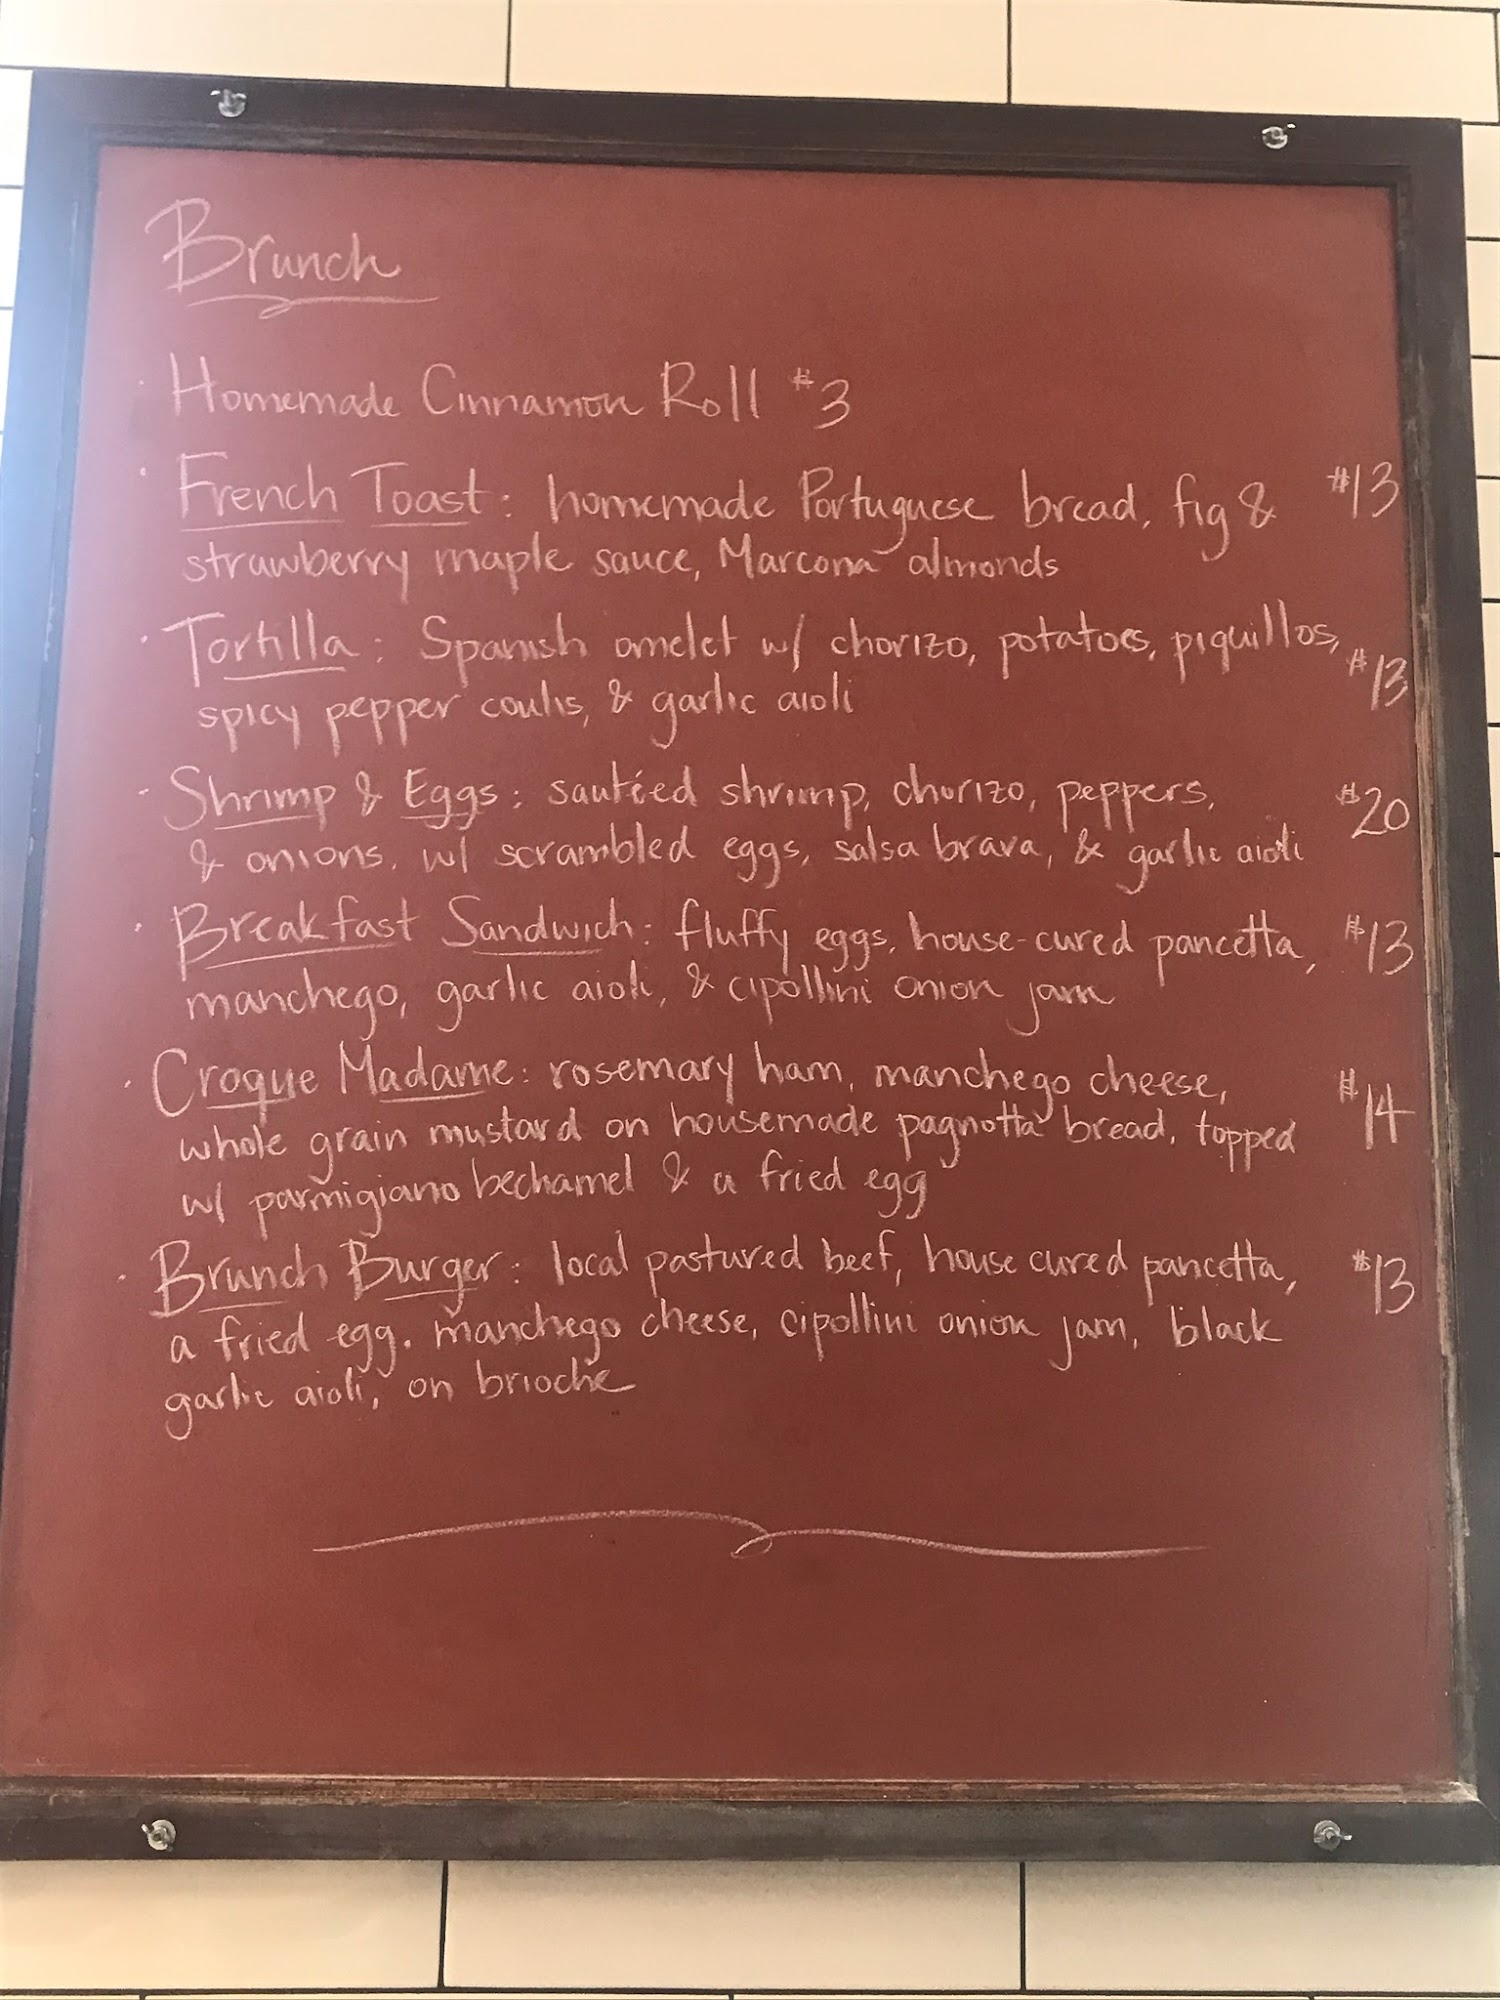 Brunch
· Homemade Cinnamon Roll $3
· French Toast: homemade Portuguese bread, fig & $13
strawberry maple sauce, Marcona almonds
· Tortilla: Spanish omelet w/ chorizo, potatoes, piquillos, $13
spicy pepper coulis, & garlic aioli
· Shrimp & Eggs: sautéed shrimp, chorizo, peppers, $20
& onions, w/ scrambled eggs, salsa brava, & garlic aioli
· Breakfast Sandwich: fluffy eggs, house-cured pancetta, $13
manchego, garlic aioli, & cipollini onion jam
· Croque Madame: rosemary ham, manchego cheese, $14
whole grain mustard on housemade pagnotta bread, topped
w/ parmigiano bechamel & a fried egg
· Brunch Burger: local pastured beef, house cured pancetta, $13
a fried egg, manchego cheese, cipollini onion jam, black
garlic aioli, on brioche